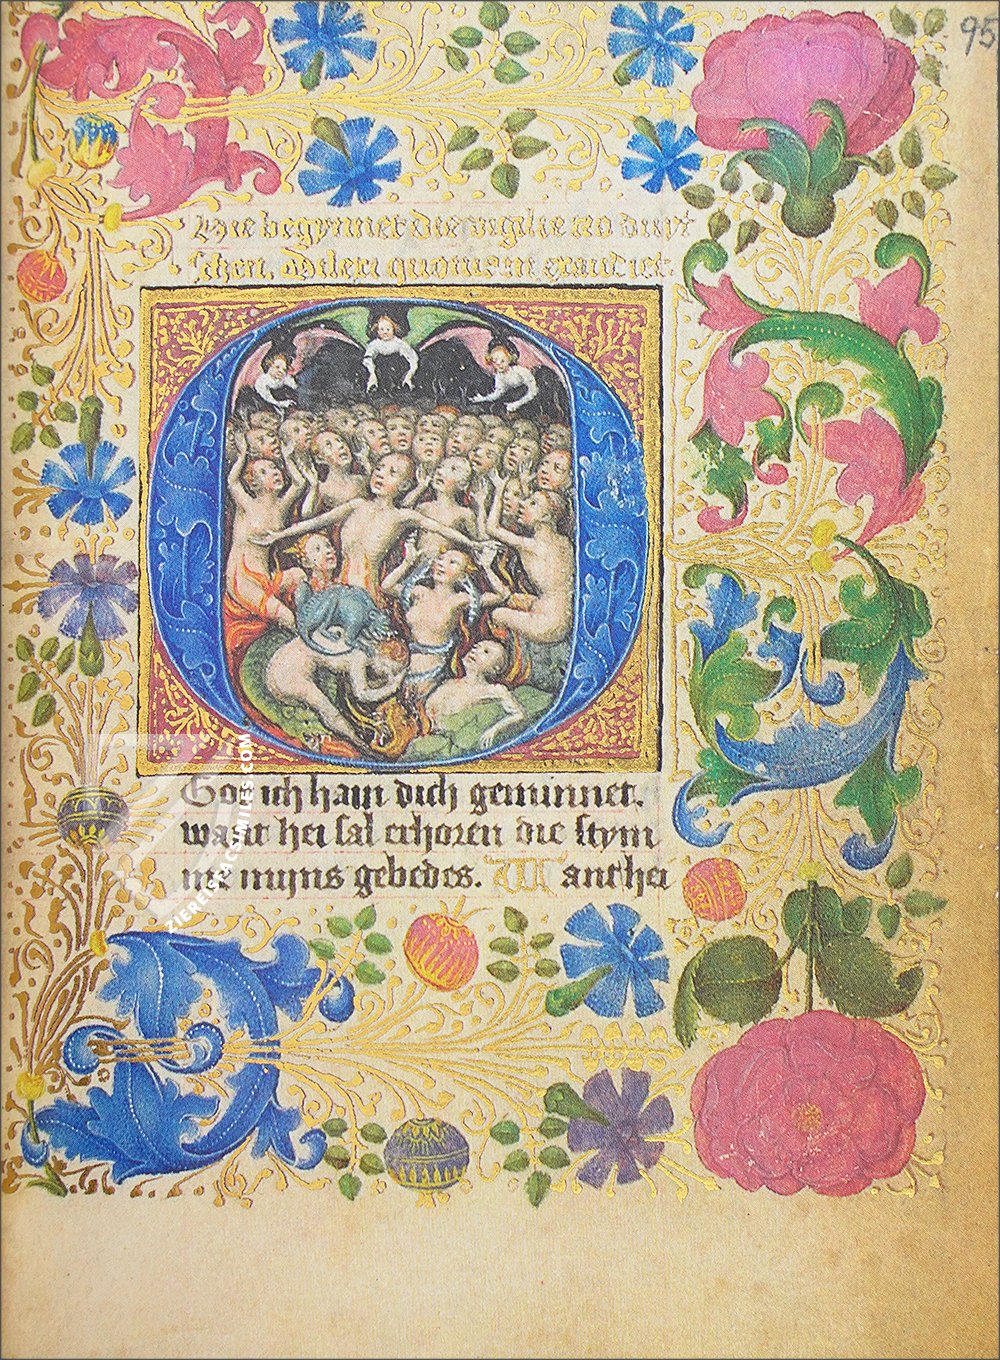 95
Hie begynnet die vigilie zo duyt
schen. Dilexi quoniam exaudiet.
Got ich hain dich geminnet.
want hei sal erhoren die stym
me myns gebedes. Want hei
ZIEREIS FACSIMILES.COM